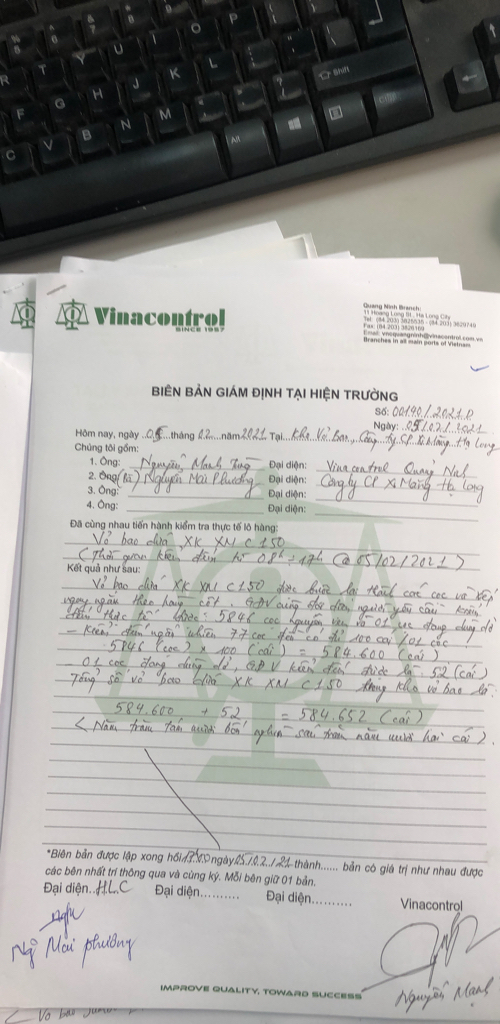 Vinacontrol
SINCE 1957
Quang Ninh Branch:
11 Hoang Long St., Ha Long City
Tel: (84.203) 3825535 - (84.203) 3829749
Fax: (84.203) 3826169
Email: vncquangninh@vinacontrol.com.vn
Branches in all main ports of Vietnam
BIÊN BẢN GIÁM ĐỊNH TẠI HIỆN TRƯỜNG
Số: 00190/2021.D
Ngày: 05/02/2021
Hôm nay, ngày 05 tháng 02 năm 2021 Tại Kho Vỏ Bao, Công ty CP Xi Măng Hạ Long
Chúng tôi gồm:
1. Ông: Nguyễn Mạnh Đại diện: Vinacontrol Quang Ninh
2. Ông (Bà) Nguyễn Mai Phương Đại diện: Công ty CP Xi Măng Hạ Long
3. Ông: Đại diện:
4. Ông: Đại diện:
Đã cùng nhau tiến hành kiểm tra thực tế lô hàng:
Vỏ bao dứa XK XM C150
(Thời gian kiểm đếm từ 08h - 17h @ 05/02/2021)
Kết quả như sau:
Vỏ bao dứa XK XM C150 được buộc lại thành các cọc và xếp
ngay ngắn theo hàng cột. GĐV cùng đại diện người yêu cầu kiểm
đếm thực tế được: 5846 cọc nguyên và 01 cọc đang dùng dở
- Kiểm đếm ngẫu nhiên 77 cọc đều có đủ 100 cái/01 cọc
5846 (cọc) x 100 (cái) = 584.600 (cái)
- 01 cọc đang dùng dở, GĐV kiểm đếm được là: 52 (cái)
Tổng số vỏ bao dứa XK XM C150 trong kho vỏ bao là:
584.600 + 52 = 584.652 (cái)
(Năm trăm tám mươi bốn nghìn sáu trăm năm mươi hai cái).
*Biên bản được lập xong hồi 17h00 ngày 05/02/21 thành...... bản có giá trị như nhau được
các bên nhất trí thông qua và cùng ký. Mỗi bên giữ 01 bản.
Đại diện..HLC Đại diện.......... Đại diện.......... Vinacontrol
Ng Mai Phương
Nguyễn Mạnh
IMPROVE QUALITY, TOWARD SUCCESS